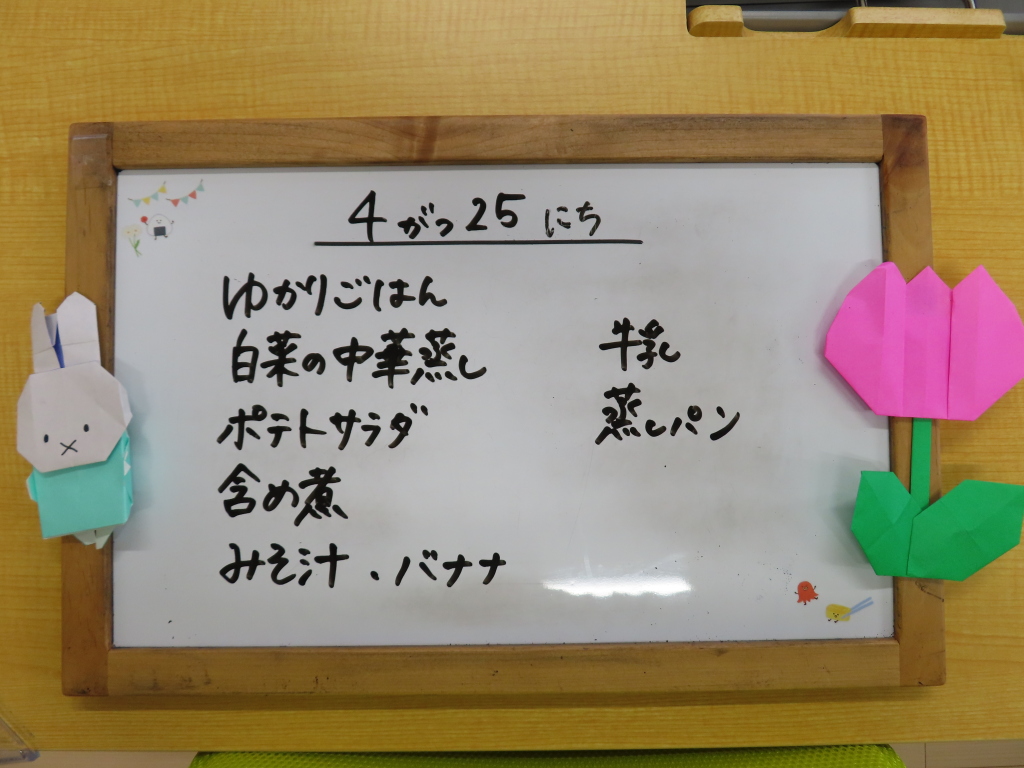 4がつ25にち
ゆかりごはん
白菜の中華蒸し
ポテトサラダ
含め煮
みそ汁、バナナ
牛乳
蒸しパン